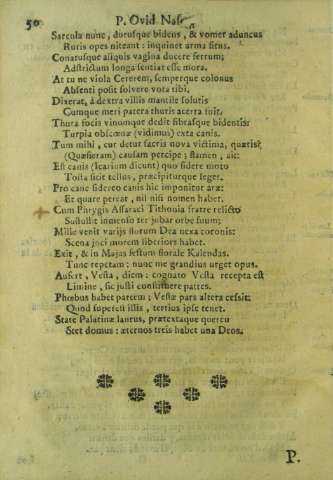 50 P. Ovid. Naso
Sarcula nunc, durusque bidens, & vomer aduncus
Ruris opes niteant: inquinet arma situs.
Conatusque aliquis vagina ducere ferrum;
Adstrictum longa sentiat esse mora.
At tu ne viola Cererem, semperque colonus
Absenti possit solvere vota tibi.
Dixerat, à dextra villis mantile solutis
Cumque meri patera thuris acerra fuit.
Thura focis vinumque dedit fibrasque bidentis:
Turpia obscœnæ (vidimus) exta canis.
Tum mihi, cur detur sacris nova victima, quæris?
(Quæsieram) causam percipe; flamen, ait:
Est canis (Icarium dicunt) quo sidere moto
Tosta sitit tellus, præcipiturque seges.
Pro cane sidereo canis hic imponitur aræ:
Et quare pereat, nil nisi nomen habet.
Cum Phrygis Assaraci Tithonia fratre relicto
Sustulit immenso ter jubar orbe suum;
Mille venit varijs florum Dea nexa coronis:
Scena joci morem liberioris habet.
Exit, & in Majas festum florale Kalendas.
Tunc repetam: nunc me grandius urget opus.
Aufert, Vesta, diem: cognato Vesta recepta est
Limine, sic justi constituere patres.
Phœbus habet partem; Vestæ pars altera cessit:
Quod superest illis, tertius ipse tenet.
State Palatinæ laurus, prætextaque quercu
Stet domus: æternos treis habet una Deos.
P.